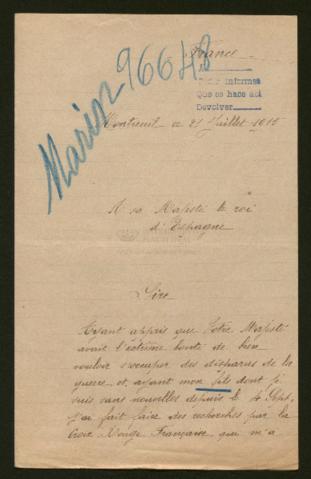 France
Marion 96648
Pedir informes
Que se hace aci
Devolver
Montreuil ce 21 Juillet 1915
A sa Majesté le roi
d'Espagne
Sire
Ayant appris que Votre Majesté
avait l'extrême bonté de bien
vouloir s'occuper des disparus de la
guerre et ayant mon fils dont je
suis sans nouvelles depuis le 4 Sept,
j'ai fait faire des recherches par la
Croix Rouge Française qui m'a